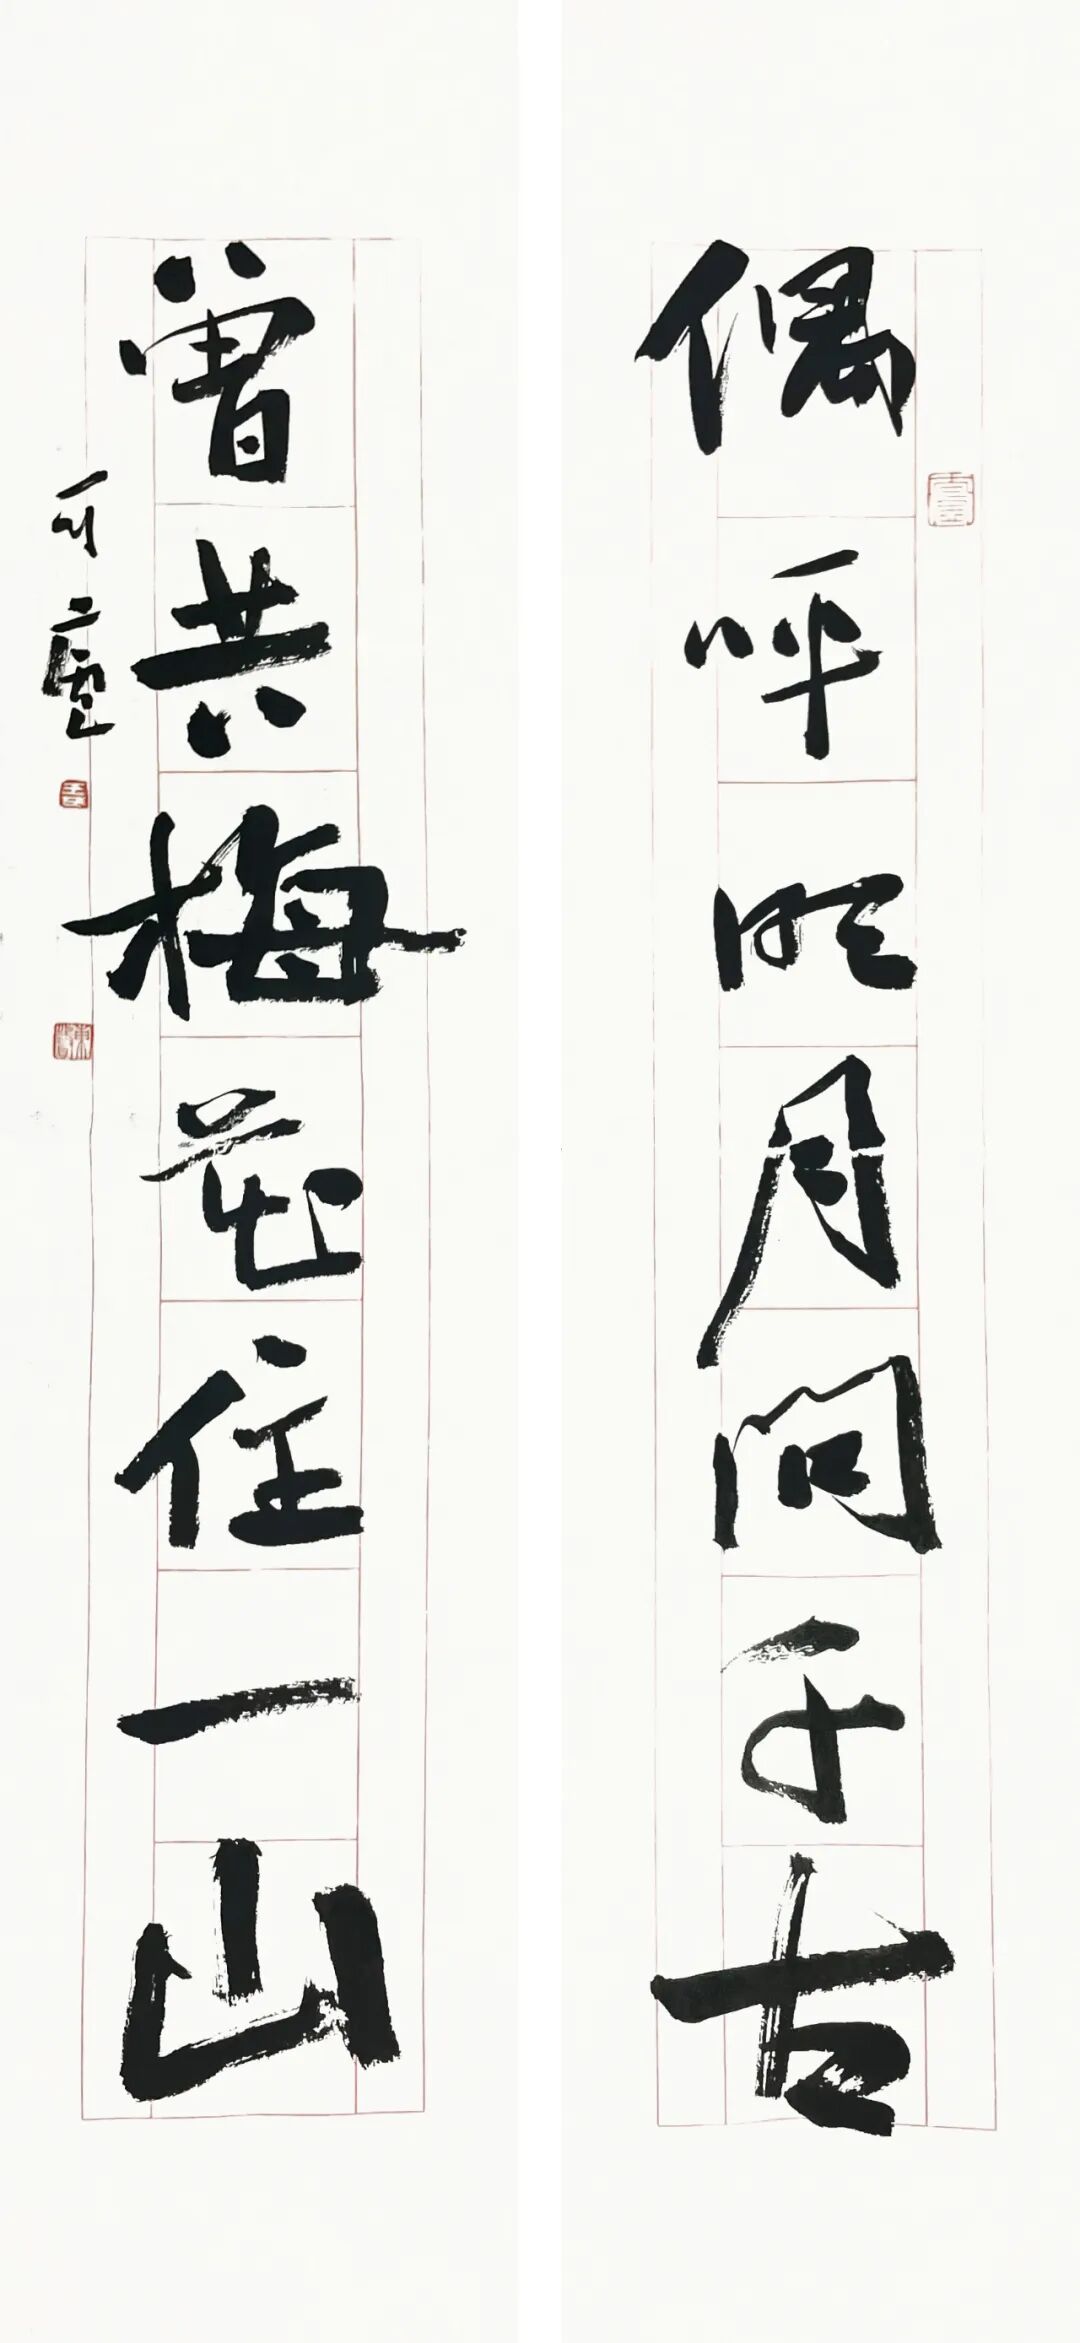 偶呼明月问千古
曾共梅花住一山
可廬